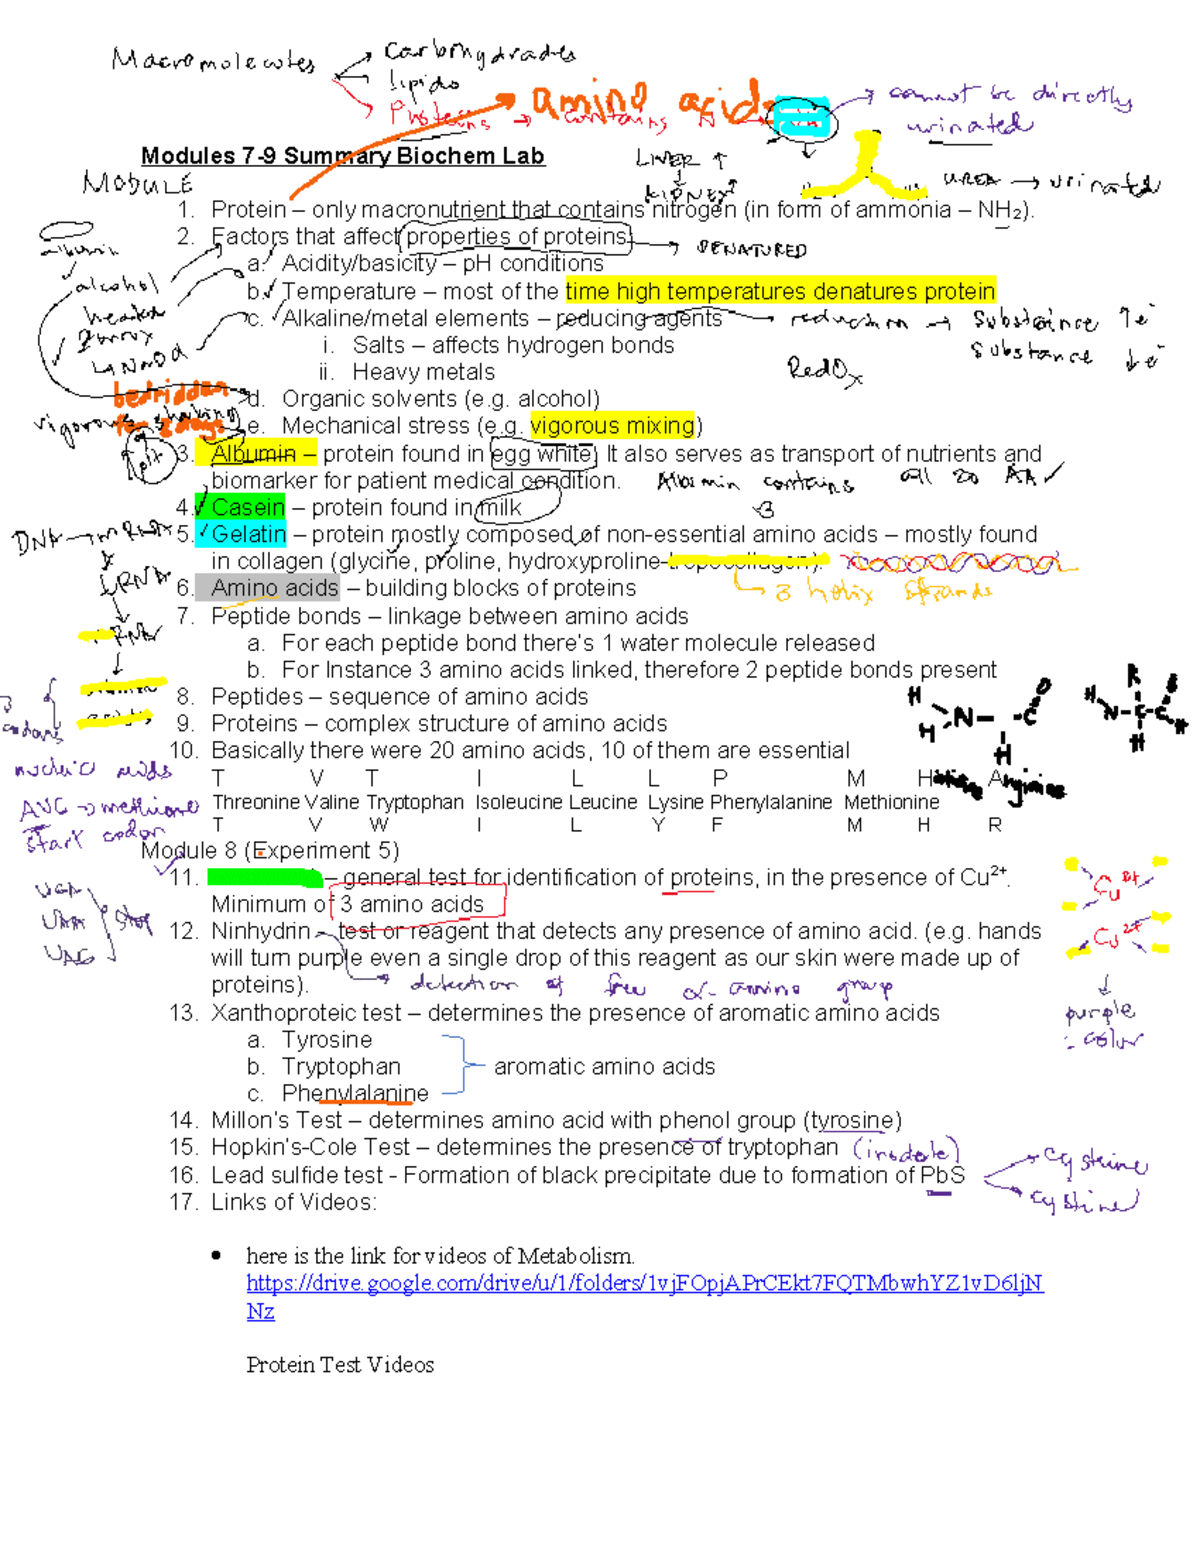 Macromolecules
Carbohydrades
lipids
Proteins → contains N
amino acid
cannot be directly
urinated
Modules 7-9 Summary Biochem Lab
LIVER ↑
KIDNEY ↑
UREA → urinated
MODULE
1. Protein – only macronutrient that contains nitrogen (in form of ammonia – NH₂).
2. Factors that affect properties of proteins
DENATURED
albumin
a. Acidity/basicity – pH conditions
alcohol
b. Temperature – most of the time high temperatures denatures protein
heated
c. Alkaline/metal elements – reducing agents
reduction → Substance ↑e⁻
Substance ↓e⁻
RedOx
i. Salts – affects hydrogen bonds
ii. Heavy metals
bedridden
d. Organic solvents (e.g. alcohol)
vigorous shaking
e. Mechanical stress (e.g. vigorous mixing)
3. Albumin – protein found in egg white. It also serves as transport of nutrients and
biomarker for patient medical condition.
Albumin contains all 20 AA ✓
4. Casein – protein found in milk
DNA → mRNA
5. Gelatin – protein mostly composed of non-essential amino acids – mostly found
in collagen (glycine, proline, hydroxyproline-tropocollagen).
3 helix strands
6. Amino acids – building blocks of proteins
7. Peptide bonds – linkage between amino acids
a. For each peptide bond there's 1 water molecule released
b. For Instance 3 amino acids linked, therefore 2 peptide bonds present
8. Peptides – sequence of amino acids
9. Proteins – complex structure of amino acids
3
codons
H N C O
H H
R O
H N-C-C
H H
10. Basically there were 20 amino acids, 10 of them are essential
nucleic acids
T V T I L L P M H A
Threonine Valine Tryptophan Isoleucine Leucine Lysine Phenylalanine Methionine Arginine
T V W I L Y F M H R
AUG → methione
start codon
Module 8 (Experiment 5)
11. – general test for identification of proteins, in the presence of Cu²⁺.
Minimum of 3 amino acids
UGA
UAA
UAG
Stop
Cu²⁺
Cu²⁺
purple
color
12. Ninhydrin – test or reagent that detects any presence of amino acid. (e.g. hands
will turn purple even a single drop of this reagent as our skin were made up of
proteins).
detection of free α-amino group
13. Xanthoproteic test – determines the presence of aromatic amino acids
a. Tyrosine
b. Tryptophan
aromatic amino acids
c. Phenylalanine
14. Millon's Test – determines amino acid with phenol group (tyrosine)
15. Hopkin's-Cole Test – determines the presence of tryptophan (indole)
16. Lead sulfide test - Formation of black precipitate due to formation of PbS
cysteine
cystine
17. Links of Videos:
• here is the link for videos of Metabolism.
https://drive.google.com/drive/u/1/folders/1vjFOpjAPrCEkt7FQTMbwhYZ1vD6ljN
Nz
Protein Test Videos